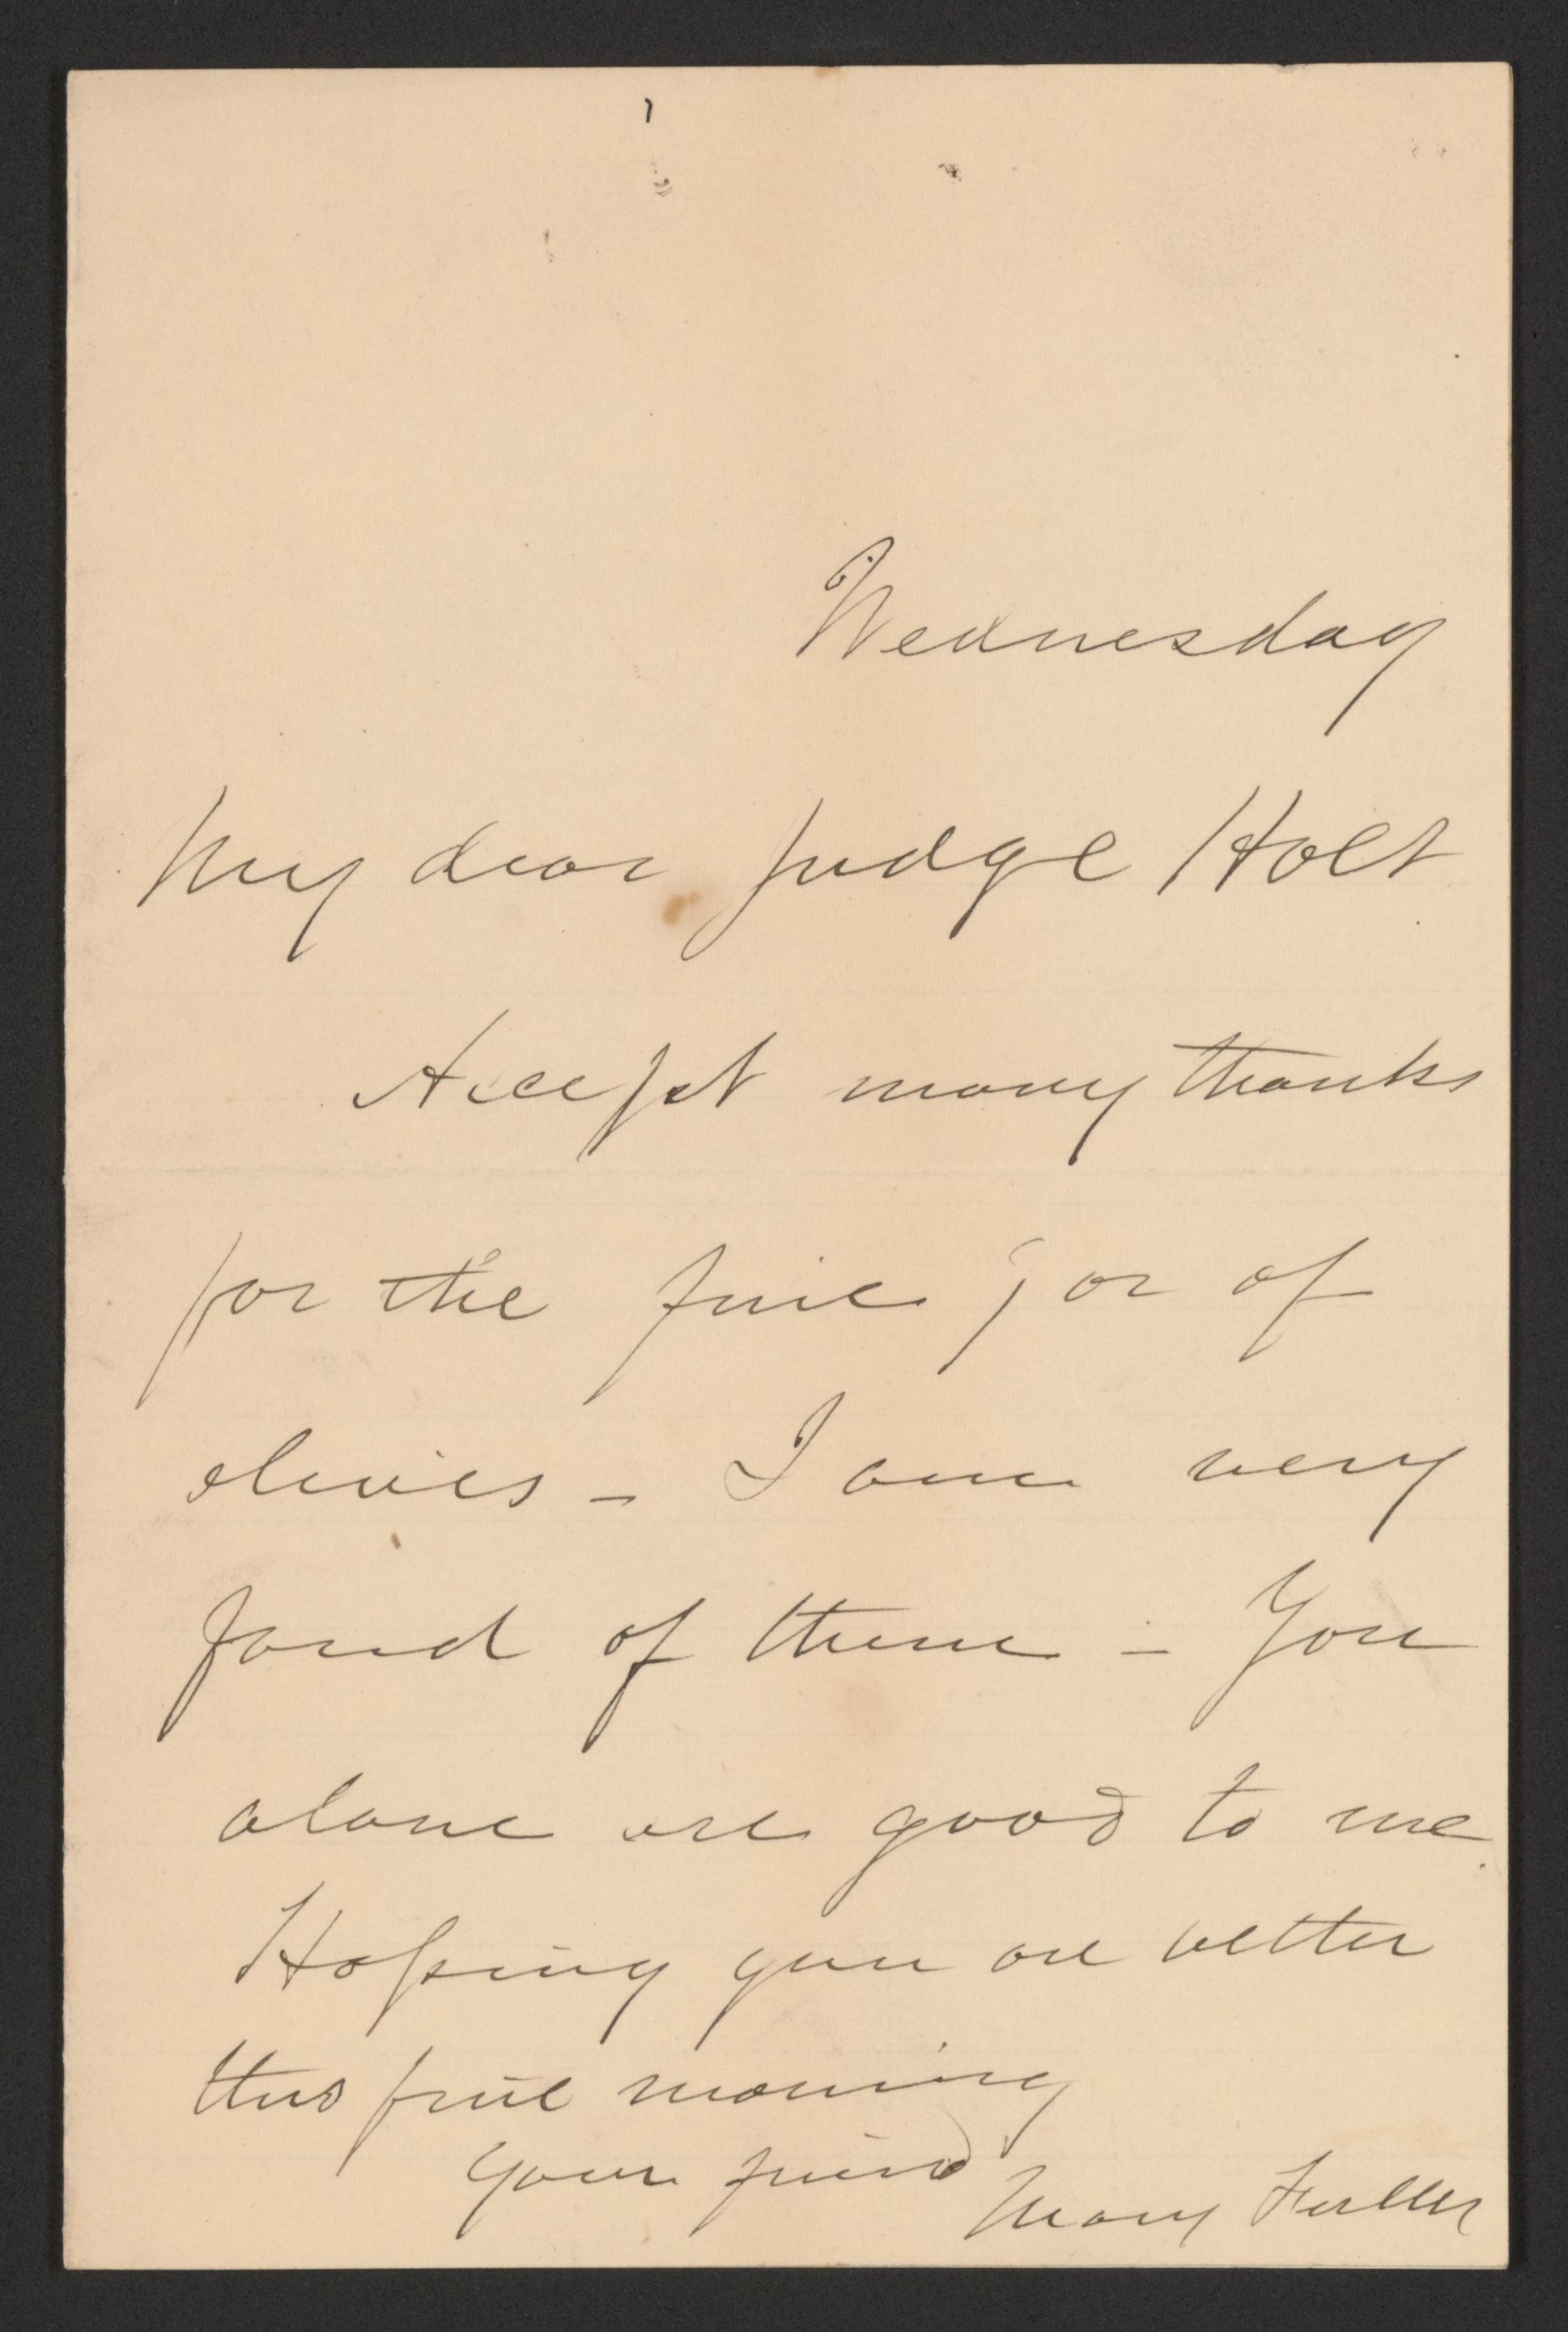 Wednesday
My dear Judge Holt
Accept many thanks
for the fine jar of
olives - I am very
fond of them - You
alone are good to me
Hoping you are better
this fine morning
Your friend
Mary Fuller